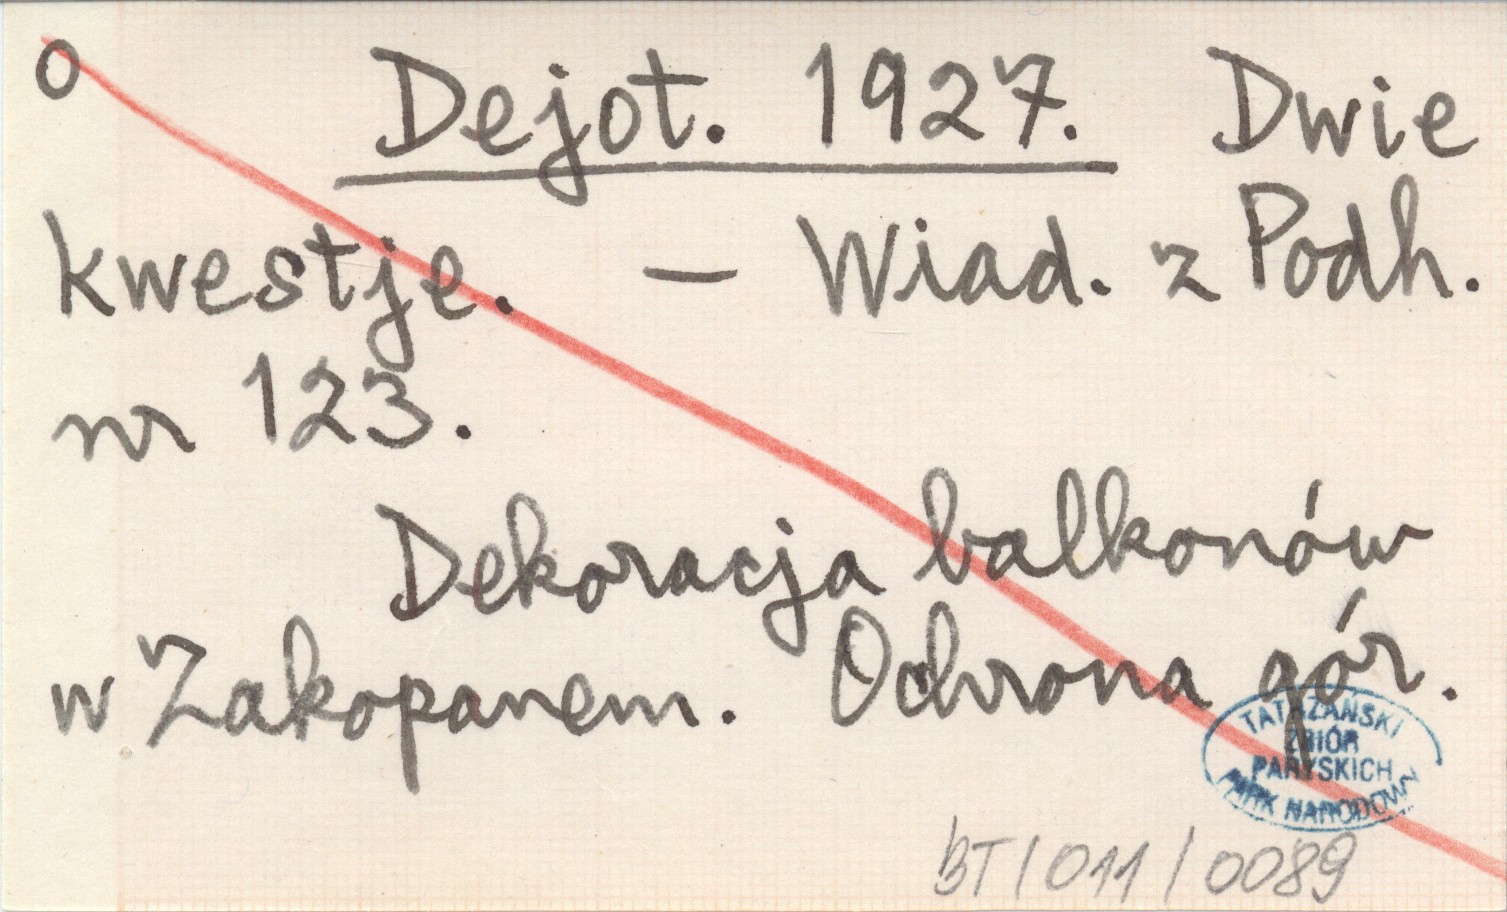 o Dejot. 1927. Dwie
kwestje. — Wiad. z Podh.
nr 123.
Dekoracja balkonów
w Zakopanem. Ochrona gór.
TATRZAŃSKI
ZBIÓR
PARYSKICH
PARK NARODOWY
BT/011/0089